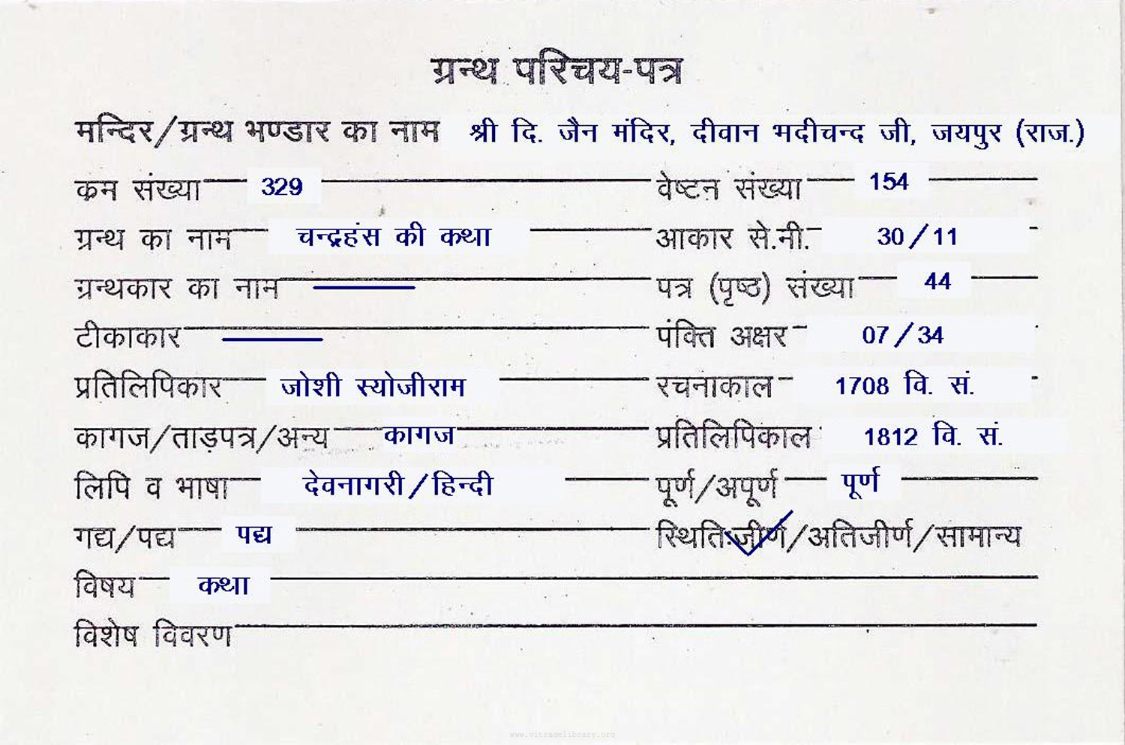 ग्रन्थ परिचय-पत्र
मन्दिर/ग्रन्थ भण्डार का नाम श्री दि. जैन मंदिर, दीवान भदीचन्द जी, जयपुर (राज.)
क्रम संख्या 329 वेष्टन संख्या 154
ग्रन्थ का नाम चन्द्रहंस की कथा आकार से.मी. 30/11
ग्रन्थकार का नाम पत्र (पृष्ठ) संख्या 44
टीकाकार पंक्ति अक्षर 07/34
प्रतिलिपिकार जोशी स्योजीराम रचनाकाल 1708 वि. सं.
कागज/ताड़पत्र/अन्य कागज प्रतिलिपिकाल 1812 वि. सं.
लिपि व भाषा देवनागरी/हिन्दी पूर्ण/अपूर्ण पूर्ण
गद्य/पद्य पद्य स्थितिःजीर्ण/अतिजीर्ण/सामान्य
विषय कथा
विशेष विवरण